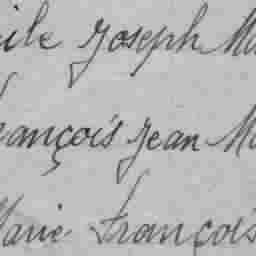 ile Joseph Ma
françois Jean Ma
Marie françois